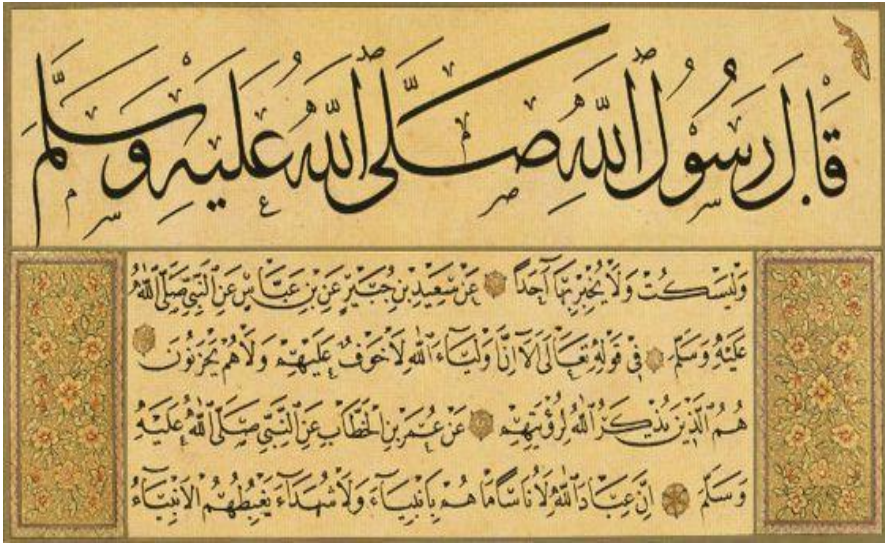 قَالَ رَسُولُ اللّٰهِ صَلَّى اللّٰهُ عَلَيْهِ وَسَلَّمَ
وَلْيَسْكُتْ وَلَا يُخْبِرْ بِهَا أَحَدًا عَنْ سَعِيدِ بْنِ جُبَيْرٍ عَنِ بْنِ عَبَّاسٍ عَنِ النَّبِيِّ صَلَّى اللّٰهُ
عَلَيْهِ وَسَلَّمَ فِي قَوْلِهِ تَعَالَى أَلَا إِنَّ أَوْلِيَاءَ اللّٰهِ لَا خَوْفٌ عَلَيْهِمْ وَلَا هُمْ يَحْزَنُونَ
هُمُ الَّذِينَ يُذْكَرُ اللّٰهُ لِرُؤْيَتِهِمْ عَنْ عُمَرَ بْنِ الْخَطَّابِ عَنِ النَّبِيِّ صَلَّى اللّٰهُ عَلَيْهِ
وَسَلَّمَ إِنَّ عِبَادَ اللّٰهِ لَأُنَاسًا مَا هُمْ بِأَنْبِيَاءَ وَلَا شُهَدَاءَ يَغْبِطُهُمُ الْأَنْبِيَاءُ